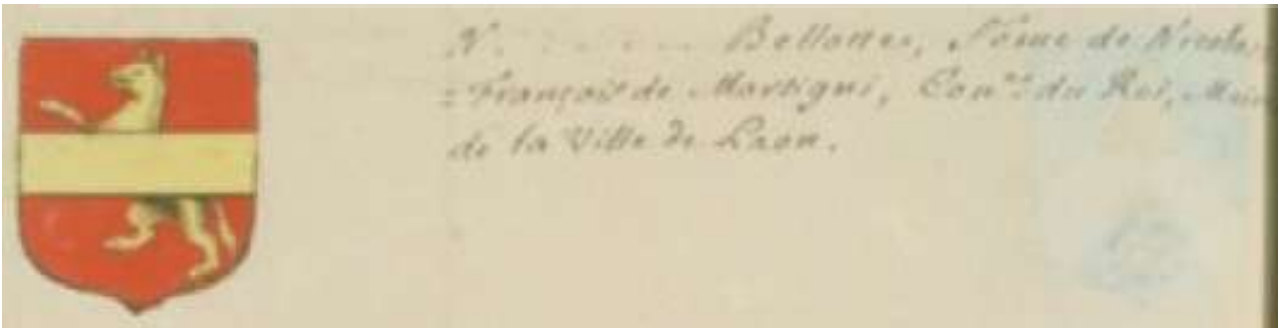 N. . . . . . . Bellotte, Feme de Nicolas
=François de Martigni, Con.er du Roi, Maire
de la Ville de Laon.